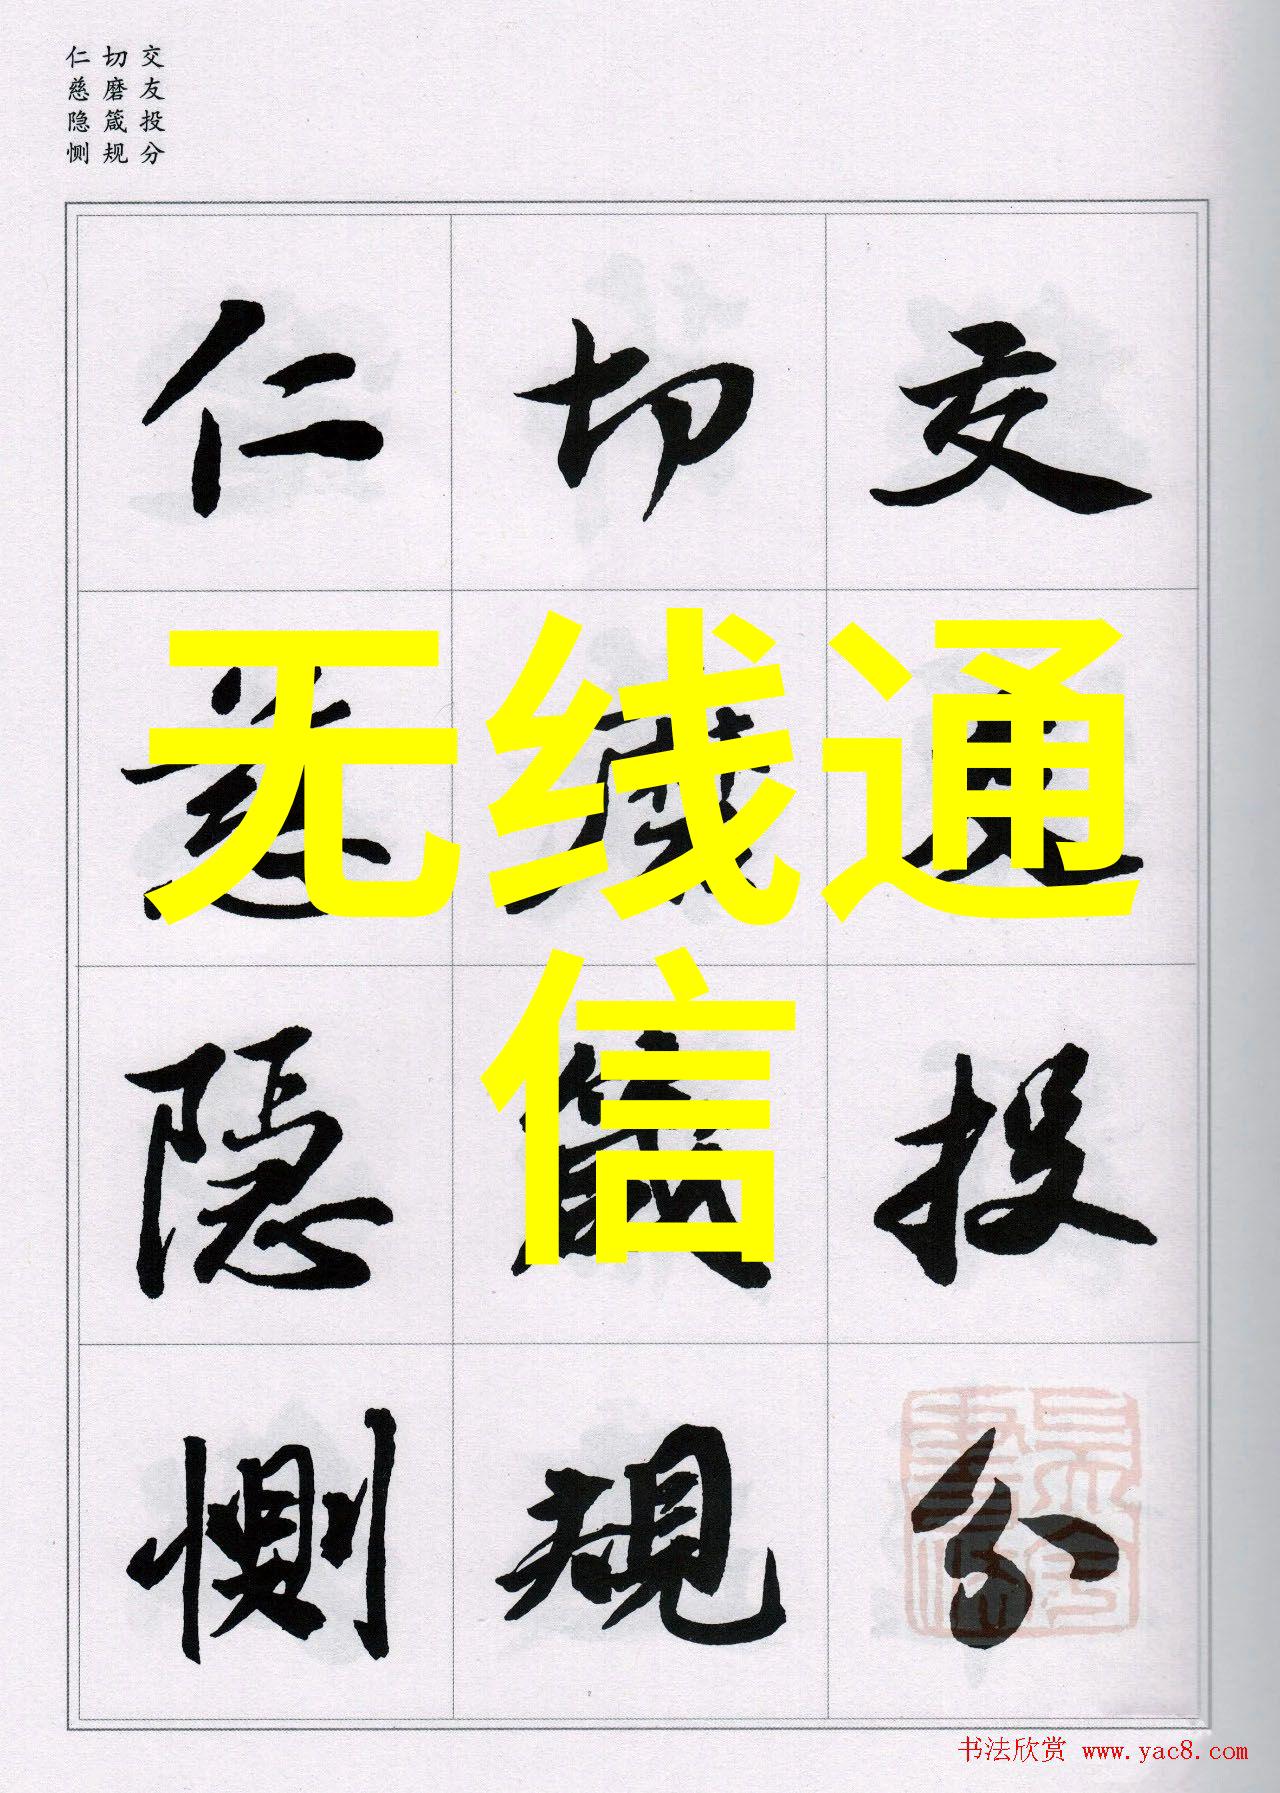 交友投分
切磨箴规
仁慈隐恻
交友投分
切磨箴規
仁慈隱惻
无线通
信
书法欣赏 www.yac8.com